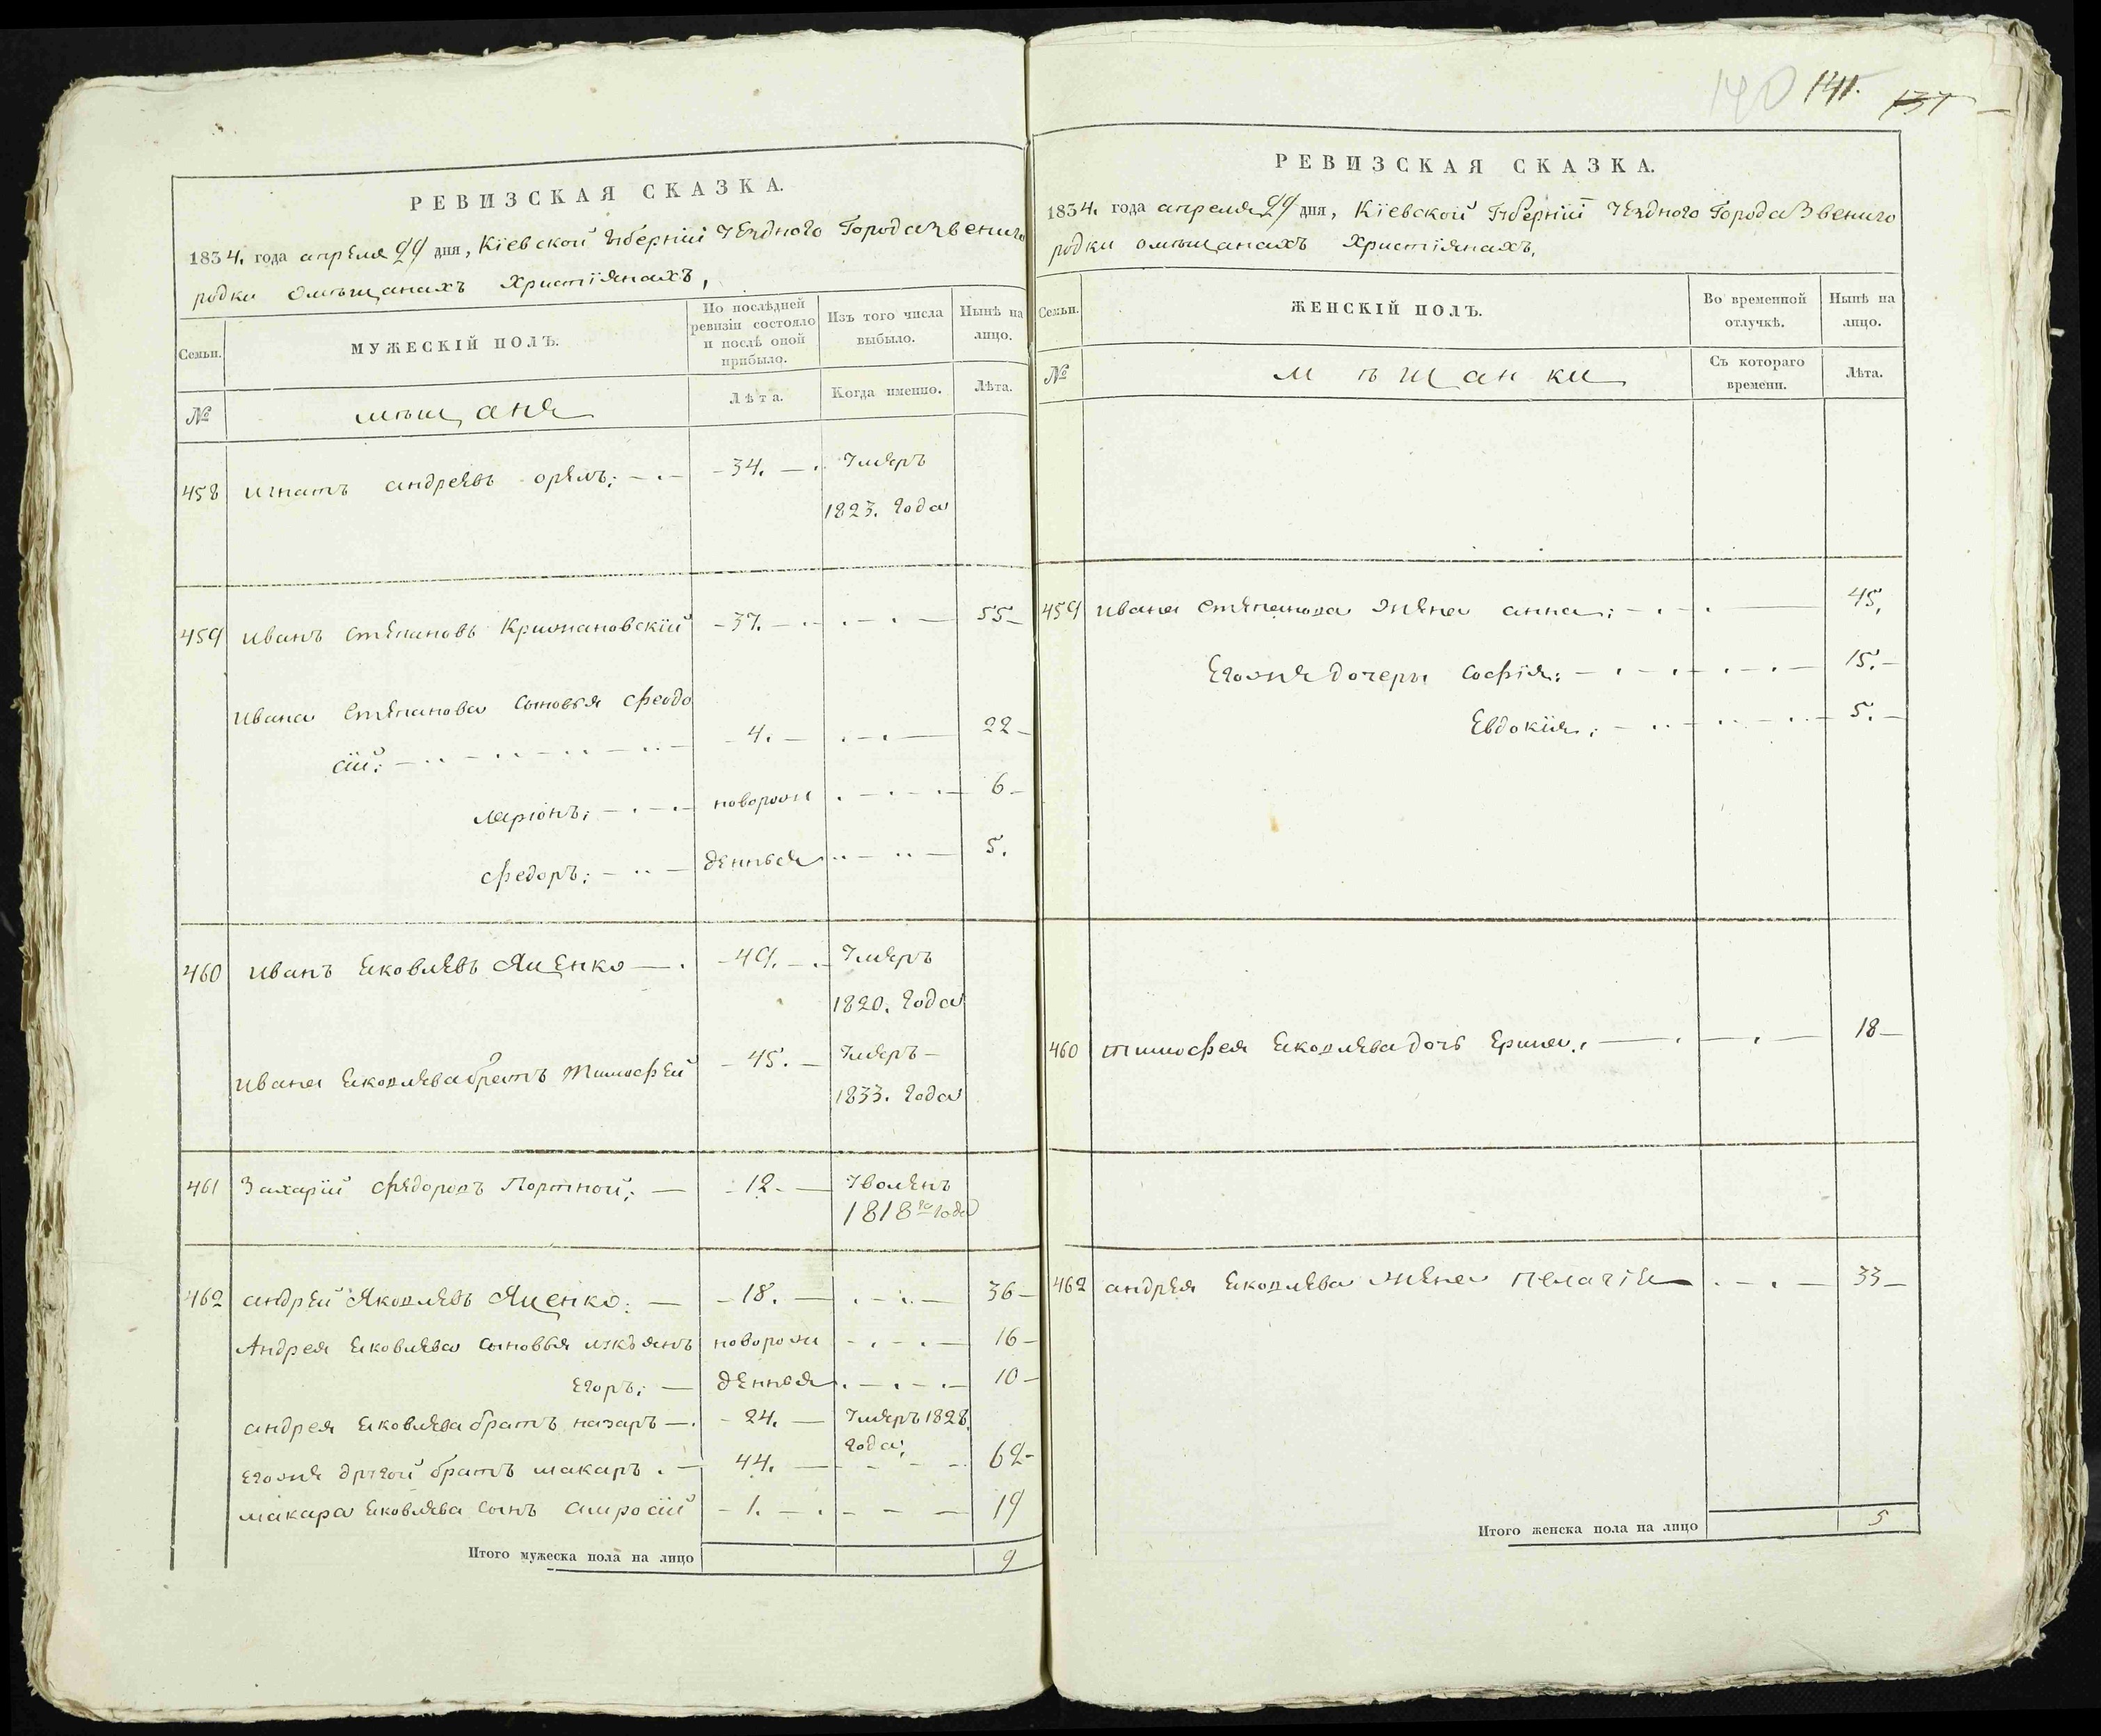 140 141. 137
РЕВИЗСКАЯ СКАЗКА.
1834. года апреля 29 дня, Кіевской губерніи уезднаго Города Звениго
родки о мѣщанахъ Христіянахъ,
Семьи.
МУЖЕСКІЙ ПОЛЪ.
По послѣдней ревизіи состояло и послѣ оной прибыло.
Изъ того числа выбыло.
Нынѣ на лицо.
№
мѣщане
Лѣта.
Когда именно.
Лѣта.
458 игнатъ андреевъ орелъ; 34. умеръ
1823. года
459 иванъ степановъ Крижановский 37. 55
ивана степанова сыновья феодо
сій: 4. 22
ларіонъ; новорож 6
федоръ; денные 5.
460 иванъ яковлевъ Яценко 49. умеръ
1820. года
ивана яковлева братъ тимофей 45. умеръ
1833. года
461 Захарій федоровъ Портной; 12. уволенъ
1818го года
462 андрей Яковлевъ Яценко: 18. 36
Андрея яковлева сыновья лукъянъ новорож 16
егоръ; денные 10
андрея яковлева братъ назаръ 24. умеръ 1828.
года,
егоже другой братъ макаръ. 44. 62
макара яковлева сынъ амросій 1. 19
Итого мужеска пола на лицо 9
РЕВИЗСКАЯ СКАЗКА.
1834. года апреля 29 дня, Кіевской губерніи уезднаго Города Звениго
родки о мѣщанахъ Христіянахъ.
Семьи.
ЖЕНСКІЙ ПОЛЪ.
Во временной отлучкѣ.
Нынѣ на лицо.
№
мѣщанки
Съ котораго времени.
Лѣта.
459 ивана степанова жена анна; 45.
егоже дочери софія; 15.
Евдокія; 5.
460 тимофея яковлева дочь ерина. 18
462 андрея яковлева жена пелагія 33
Итого женска пола на лицо 5